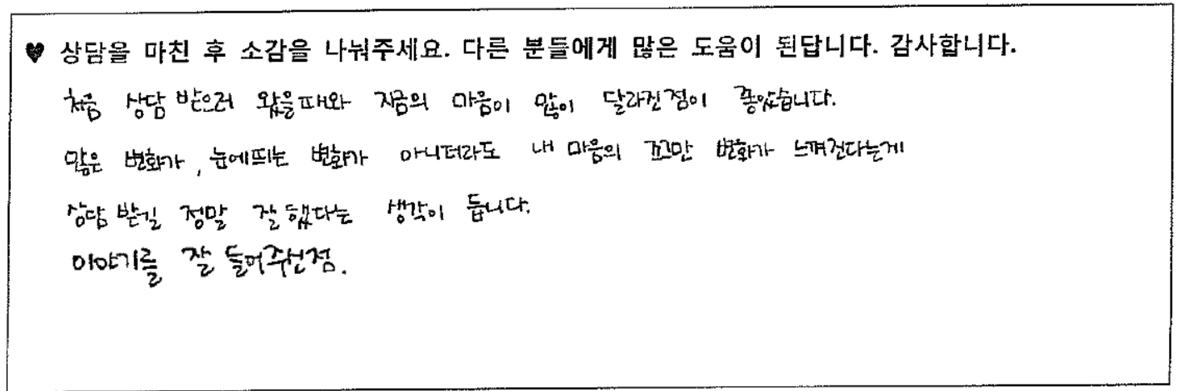 ♥ 상담을 마친 후 소감을 나눠주세요. 다른 분들에게 많은 도움이 된답니다. 감사합니다.
처음 상담 받으러 왔을때와 지금의 마음이 많이 달라진점이 좋았습니다.
많은 변화가, 눈에띄는 변화가 아니더라도 내 마음의 꼬만 변화가 느껴진다는게
상담 받길 정말 잘 했다는 생각이 듭니다.
이야기를 잘 들어주신점.